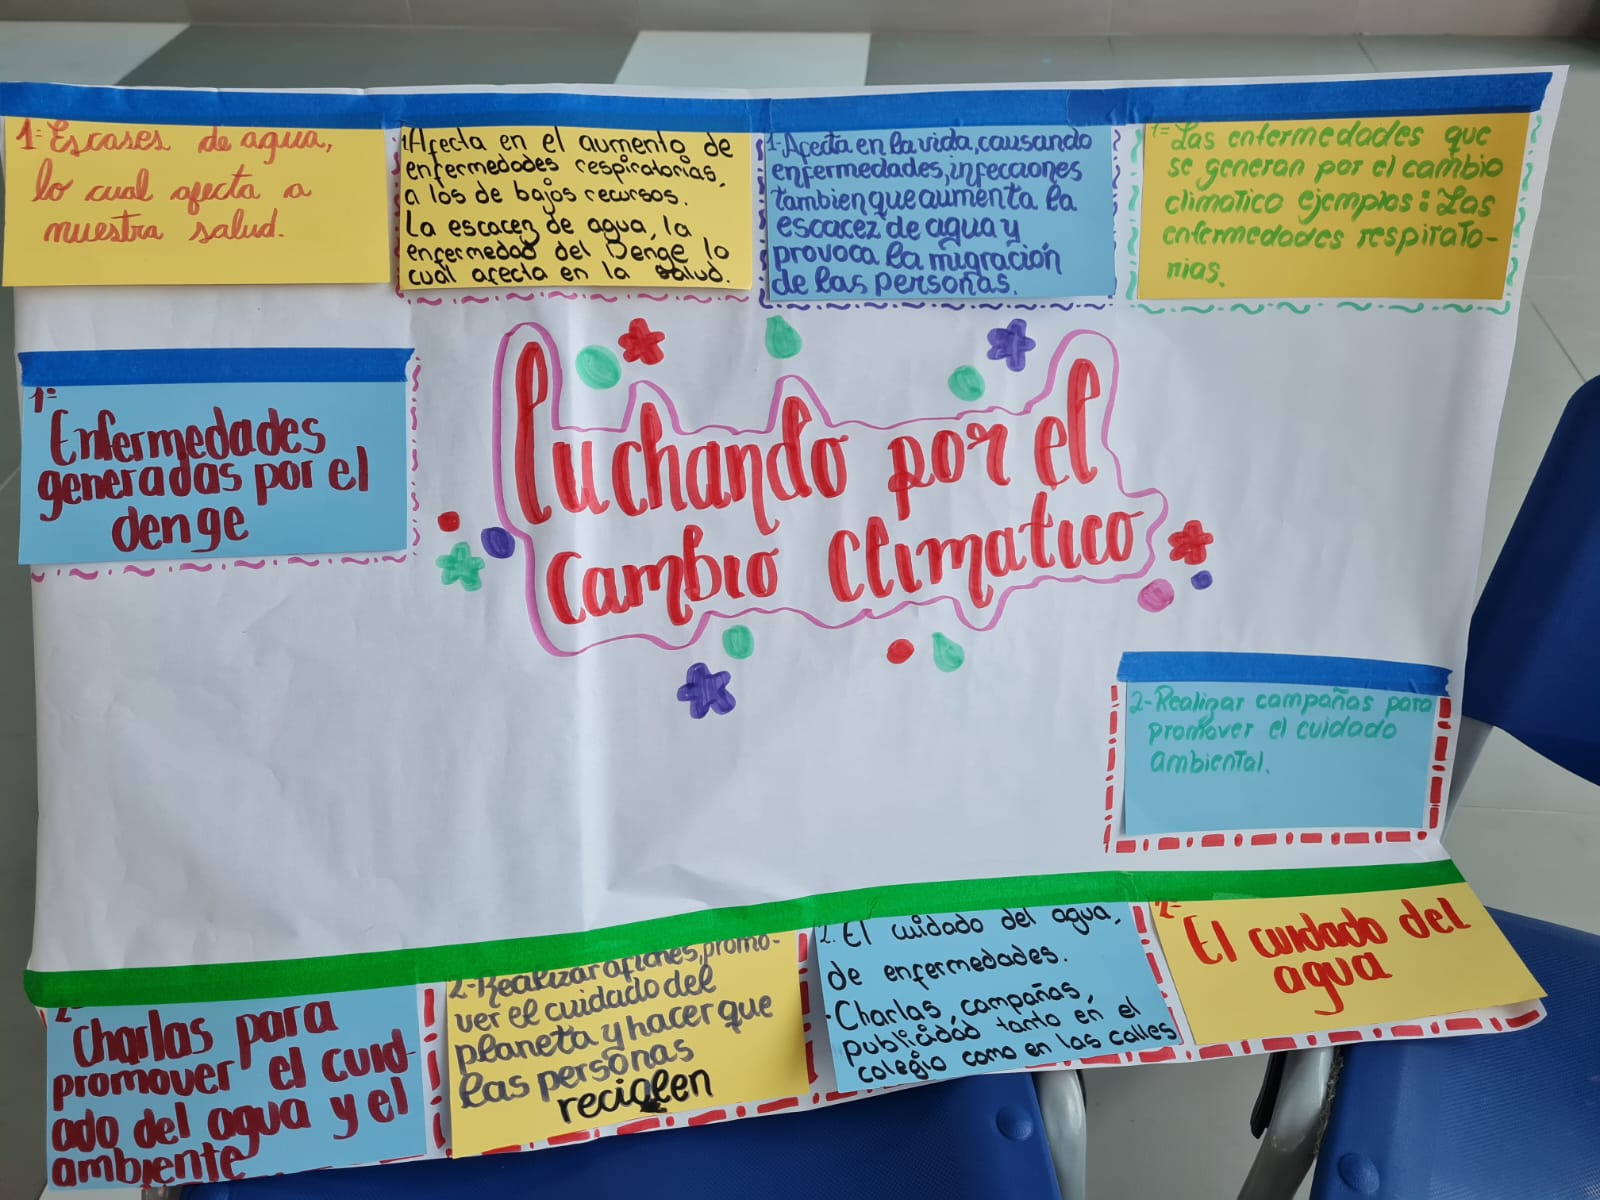 1= Escases de agua,
lo cual afecta a
nuestra salud.
1 Afecta en el aumento de
enfermedades respiratorias,
a los de bajos recursos.
La escacez de agua, la
enfermedad del Denge lo
cual afecta en la salud.
1- Afecta en la vida, causando
enfermedades, infecciones
tambien que aumenta la
escacez de agua y
provoca la migración
de las personas.
1= Las enfermedades que
se generan por el cambio
climatico ejemplos: Las
enfermedades respirato-
rias.
1=
Enfermedades
generadas por el
denge
luchando por el
cambio climatico
2- Realizar campañas para
promover el cuidado
ambiental.
Charlas para
promover el cuid-
ado del agua y el
ambiente
2- Realizar afiches, promo-
ver el cuidado del
planeta y hacer que
las personas
reciclen
2. El cuidado del agua,
de enfermedades.
- Charlas, campañas,
publicidad tanto en el
colegio como en las calles
2-
El cuidado del
agua